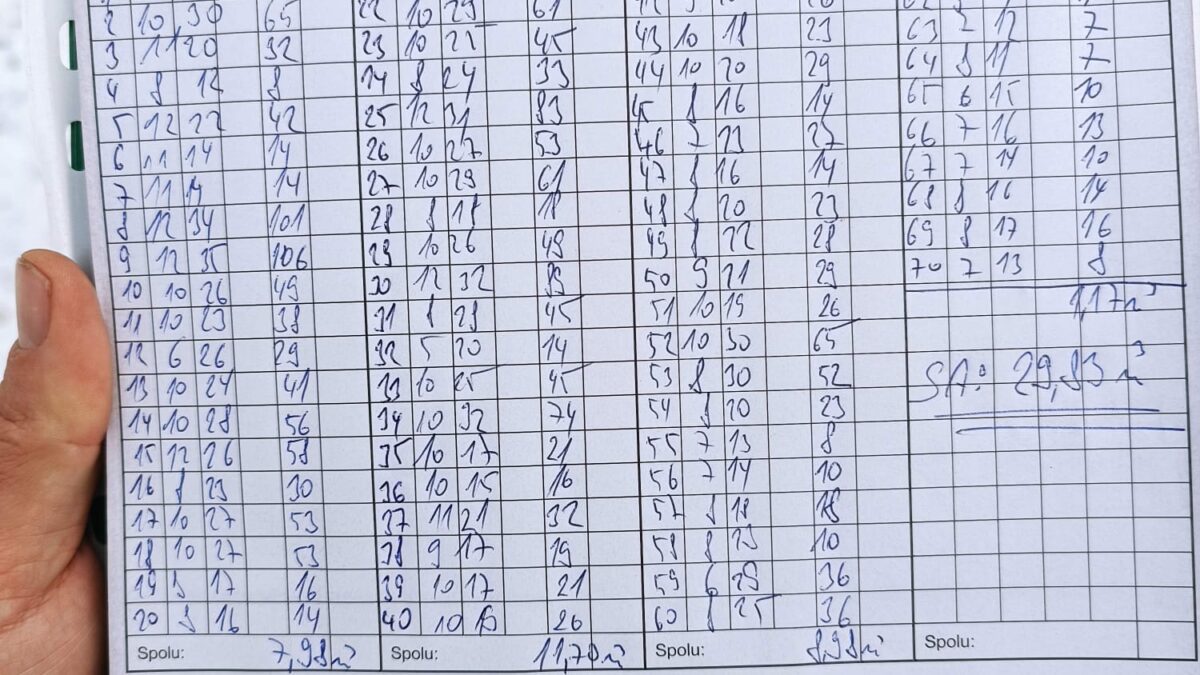 2 10 30 65 22 10 29 61
3 11 20 32 23 10 25 45 43 10 18 23 63 7 12 7
4 8 12 8 24 8 24 33 44 10 20 29 64 8 11 7
5 12 22 42 25 12 31 83 45 8 16 14 65 6 15 10
6 11 14 14 26 10 27 53 46 7 23 27 66 7 16 13
7 11 14 14 27 10 29 61 47 8 16 14 67 7 14 10
8 12 34 101 28 8 18 18 48 8 20 23 68 8 16 14
9 12 35 106 29 10 26 49 49 8 22 28 69 8 17 16
10 10 26 49 30 12 32 89 50 9 21 29 70 7 13 8
11 10 23 38 31 8 28 45 51 10 19 26 1,17 m³
12 6 26 29 32 5 20 14 52 10 30 65
13 10 24 41 33 10 25 45 53 8 30 52 SA: 29,83 m³
14 10 28 56 34 10 32 74 54 8 20 23
15 12 26 58 35 10 17 21 55 7 13 8
16 8 23 30 36 10 15 16 56 7 14 10
17 10 27 53 37 11 21 32 57 8 18 18
18 10 27 53 38 9 17 19 58 8 10
19 9 17 16 39 10 17 21 59 6 29 36
20 8 16 14 40 10 19 26 60 8 25 36
Spolu: 7,98 m³ Spolu: 11,70 m³ Spolu: 8,98 m³ Spolu: